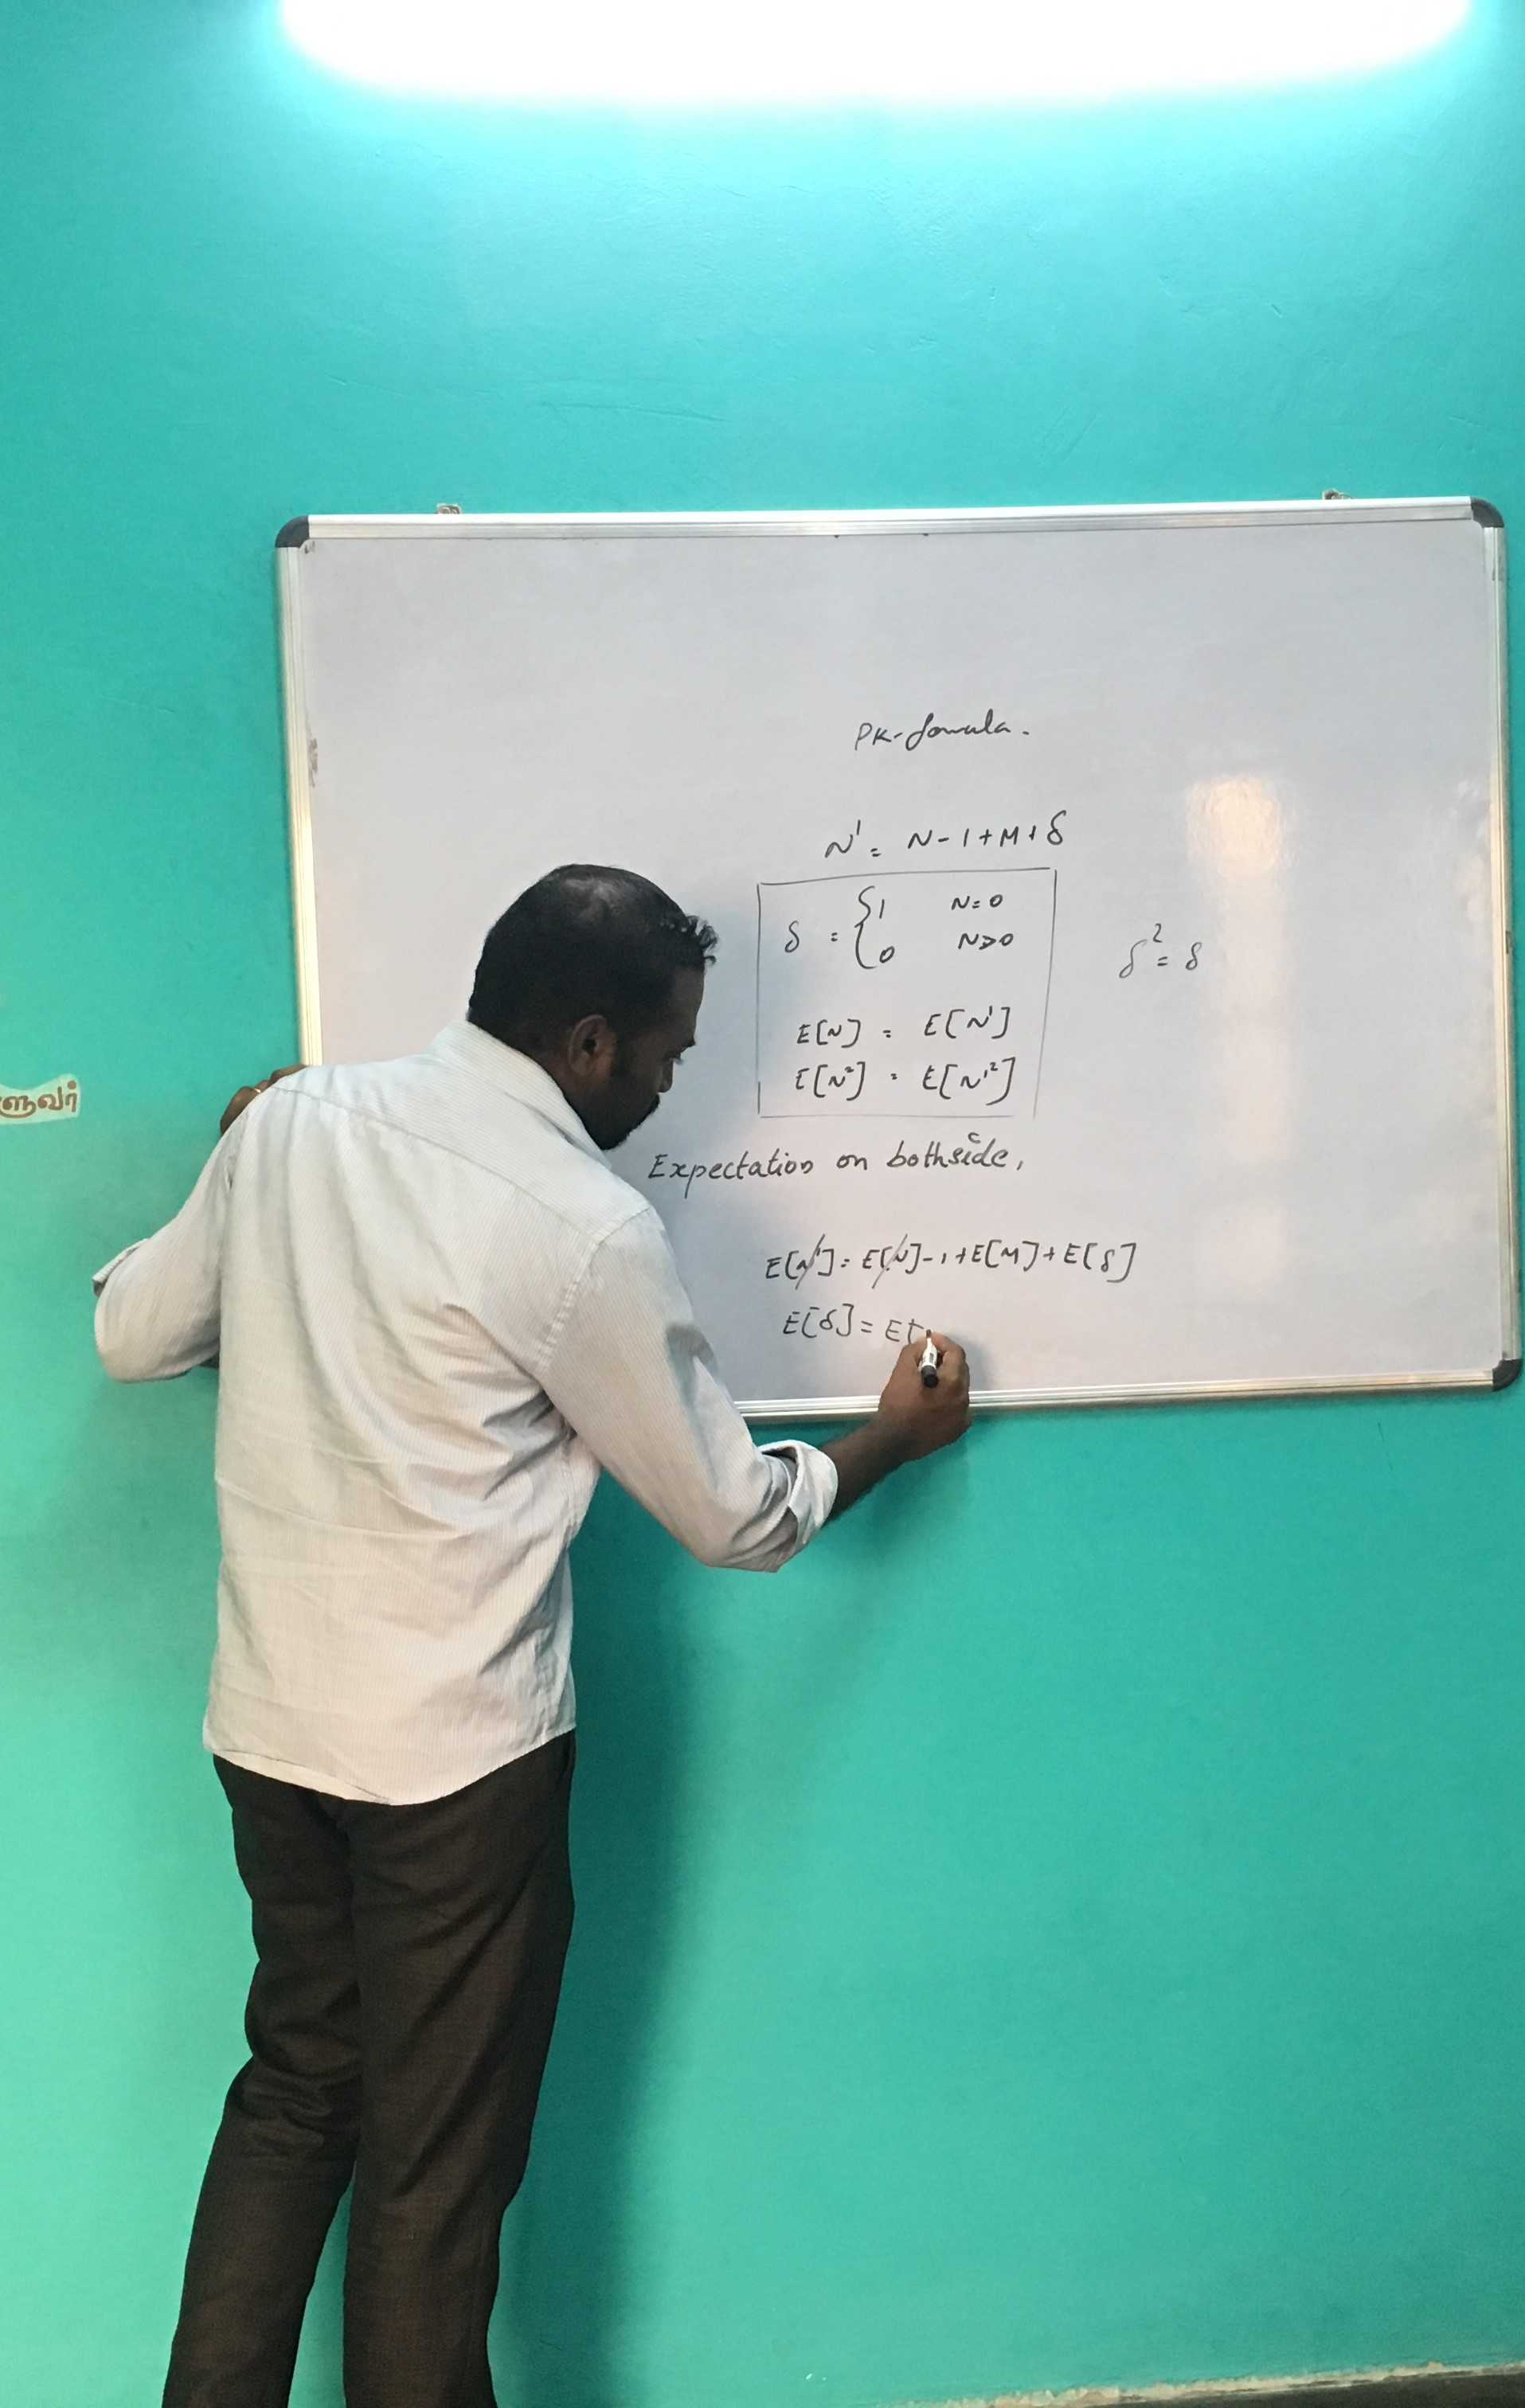 PK-fomula.
N' = N-1+M+δ
δ = { 1 N=0
0 N>0
δ² = δ
E[N] = E[N']
E[N²] = E[N'²]
Expectation on bothside,
E[N'] = E[N]-1+E[M]+E[δ]
E[δ] = E[
ளுவர்